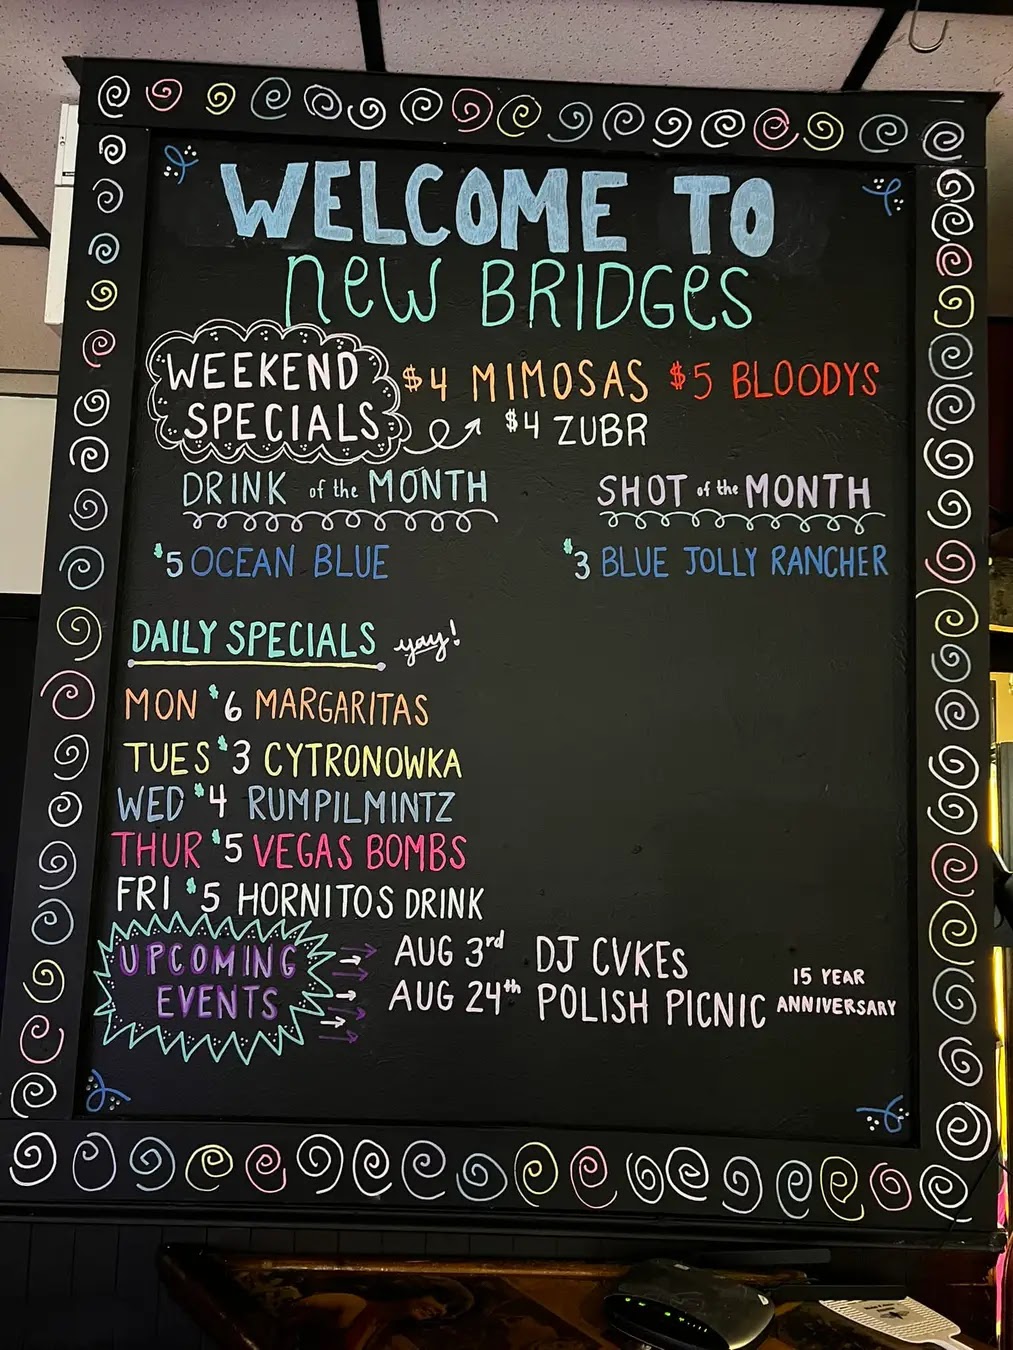 WELCOME TO
new BRIDGes
WEEKEND
SPECIALS
$4 MIMOSAS $5 BLOODYS
$4 ZUBR
DRINK of the MONTH
$5 OCEAN BLUE
SHOT of the MONTH
$3 BLUE JOLLY RANCHER
DAILY SPECIALS yay!
MON $6 MARGARITAS
TUES $3 CYTRONOWKA
WED $4 RUMPILMINTZ
THUR $5 VEGAS BOMBS
FRI $5 HORNITOS DRINK
UPCOMING
EVENTS
AUG 3rd DJ CVKEs
AUG 24th POLISH PICNIC
15 YEAR
ANNIVERSARY